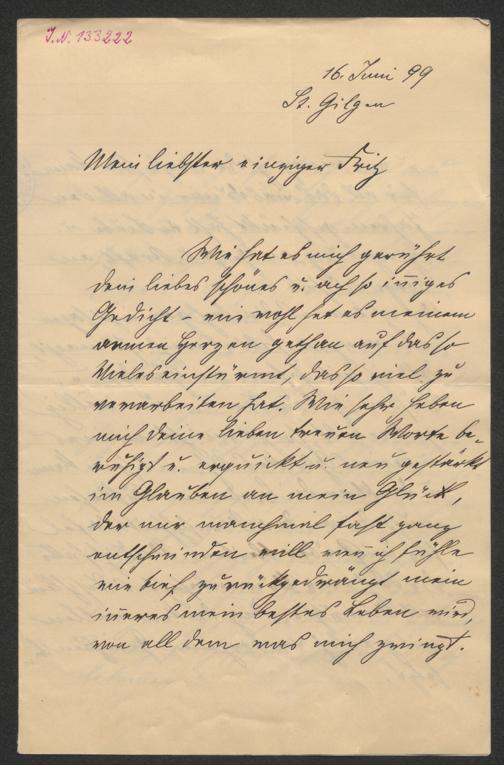 J.N. 133222
16. Juni 99
St. Gilgen
Mein liebster einziger Fritz
Wie hat es mich gerührt
dein liebes schönes u. ach so iñiges
Gedicht – wie wohl hat es meinem
armen Herzen gethan auf das so
Vieles einstürmt, das so viel zu
verarbeiten hat. Wie sehr haben
mich deine lieben treuen Worte be-
ruhigt u. erquickt u. neu gestärkt
im Glauben an mein Glück,
der mir manchmal fast ganz
entschwinden will weñ ich fühle
wie tief zurückgedrängt mein
iñeres mein bestes Leben wird,
von all dem was mich zwingt.